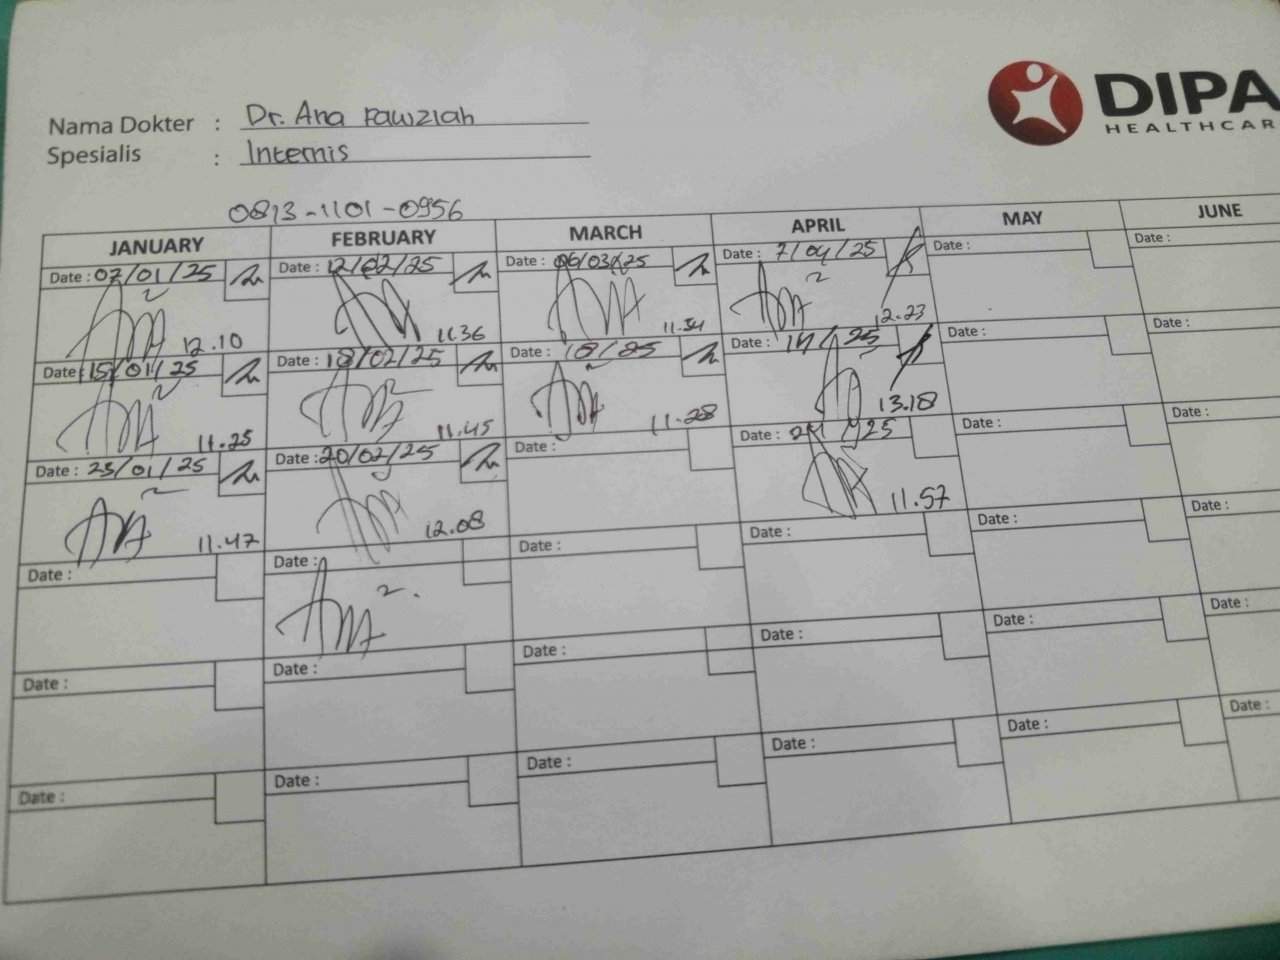 DIPA
HEALTHCAR
Nama Dokter : Dr. Ana Fauziah
Spesialis : Internis
0813-1101-0956
JANUARY FEBRUARY MARCH APRIL MAY JUNE
Date : 07/01/25 Date : 12/02/25 Date : 06/03/25 Date : 7/04/25 Date : Date :
12.10 11.36 11.34 12.23
Date : 15/01/25 Date : 18/02/25 Date : 18/25 Date : 14/25 Date : Date :
11.25 11.45 11.28 13.18
Date : 23/01/25 Date : 20/02/25 Date : Date : 25 Date : Date :
11.47 12.08 11.57
Date : Date : Date : Date : Date : Date :
Date : Date : Date : Date : Date : Date :
Date : Date : Date : Date : Date : Date :